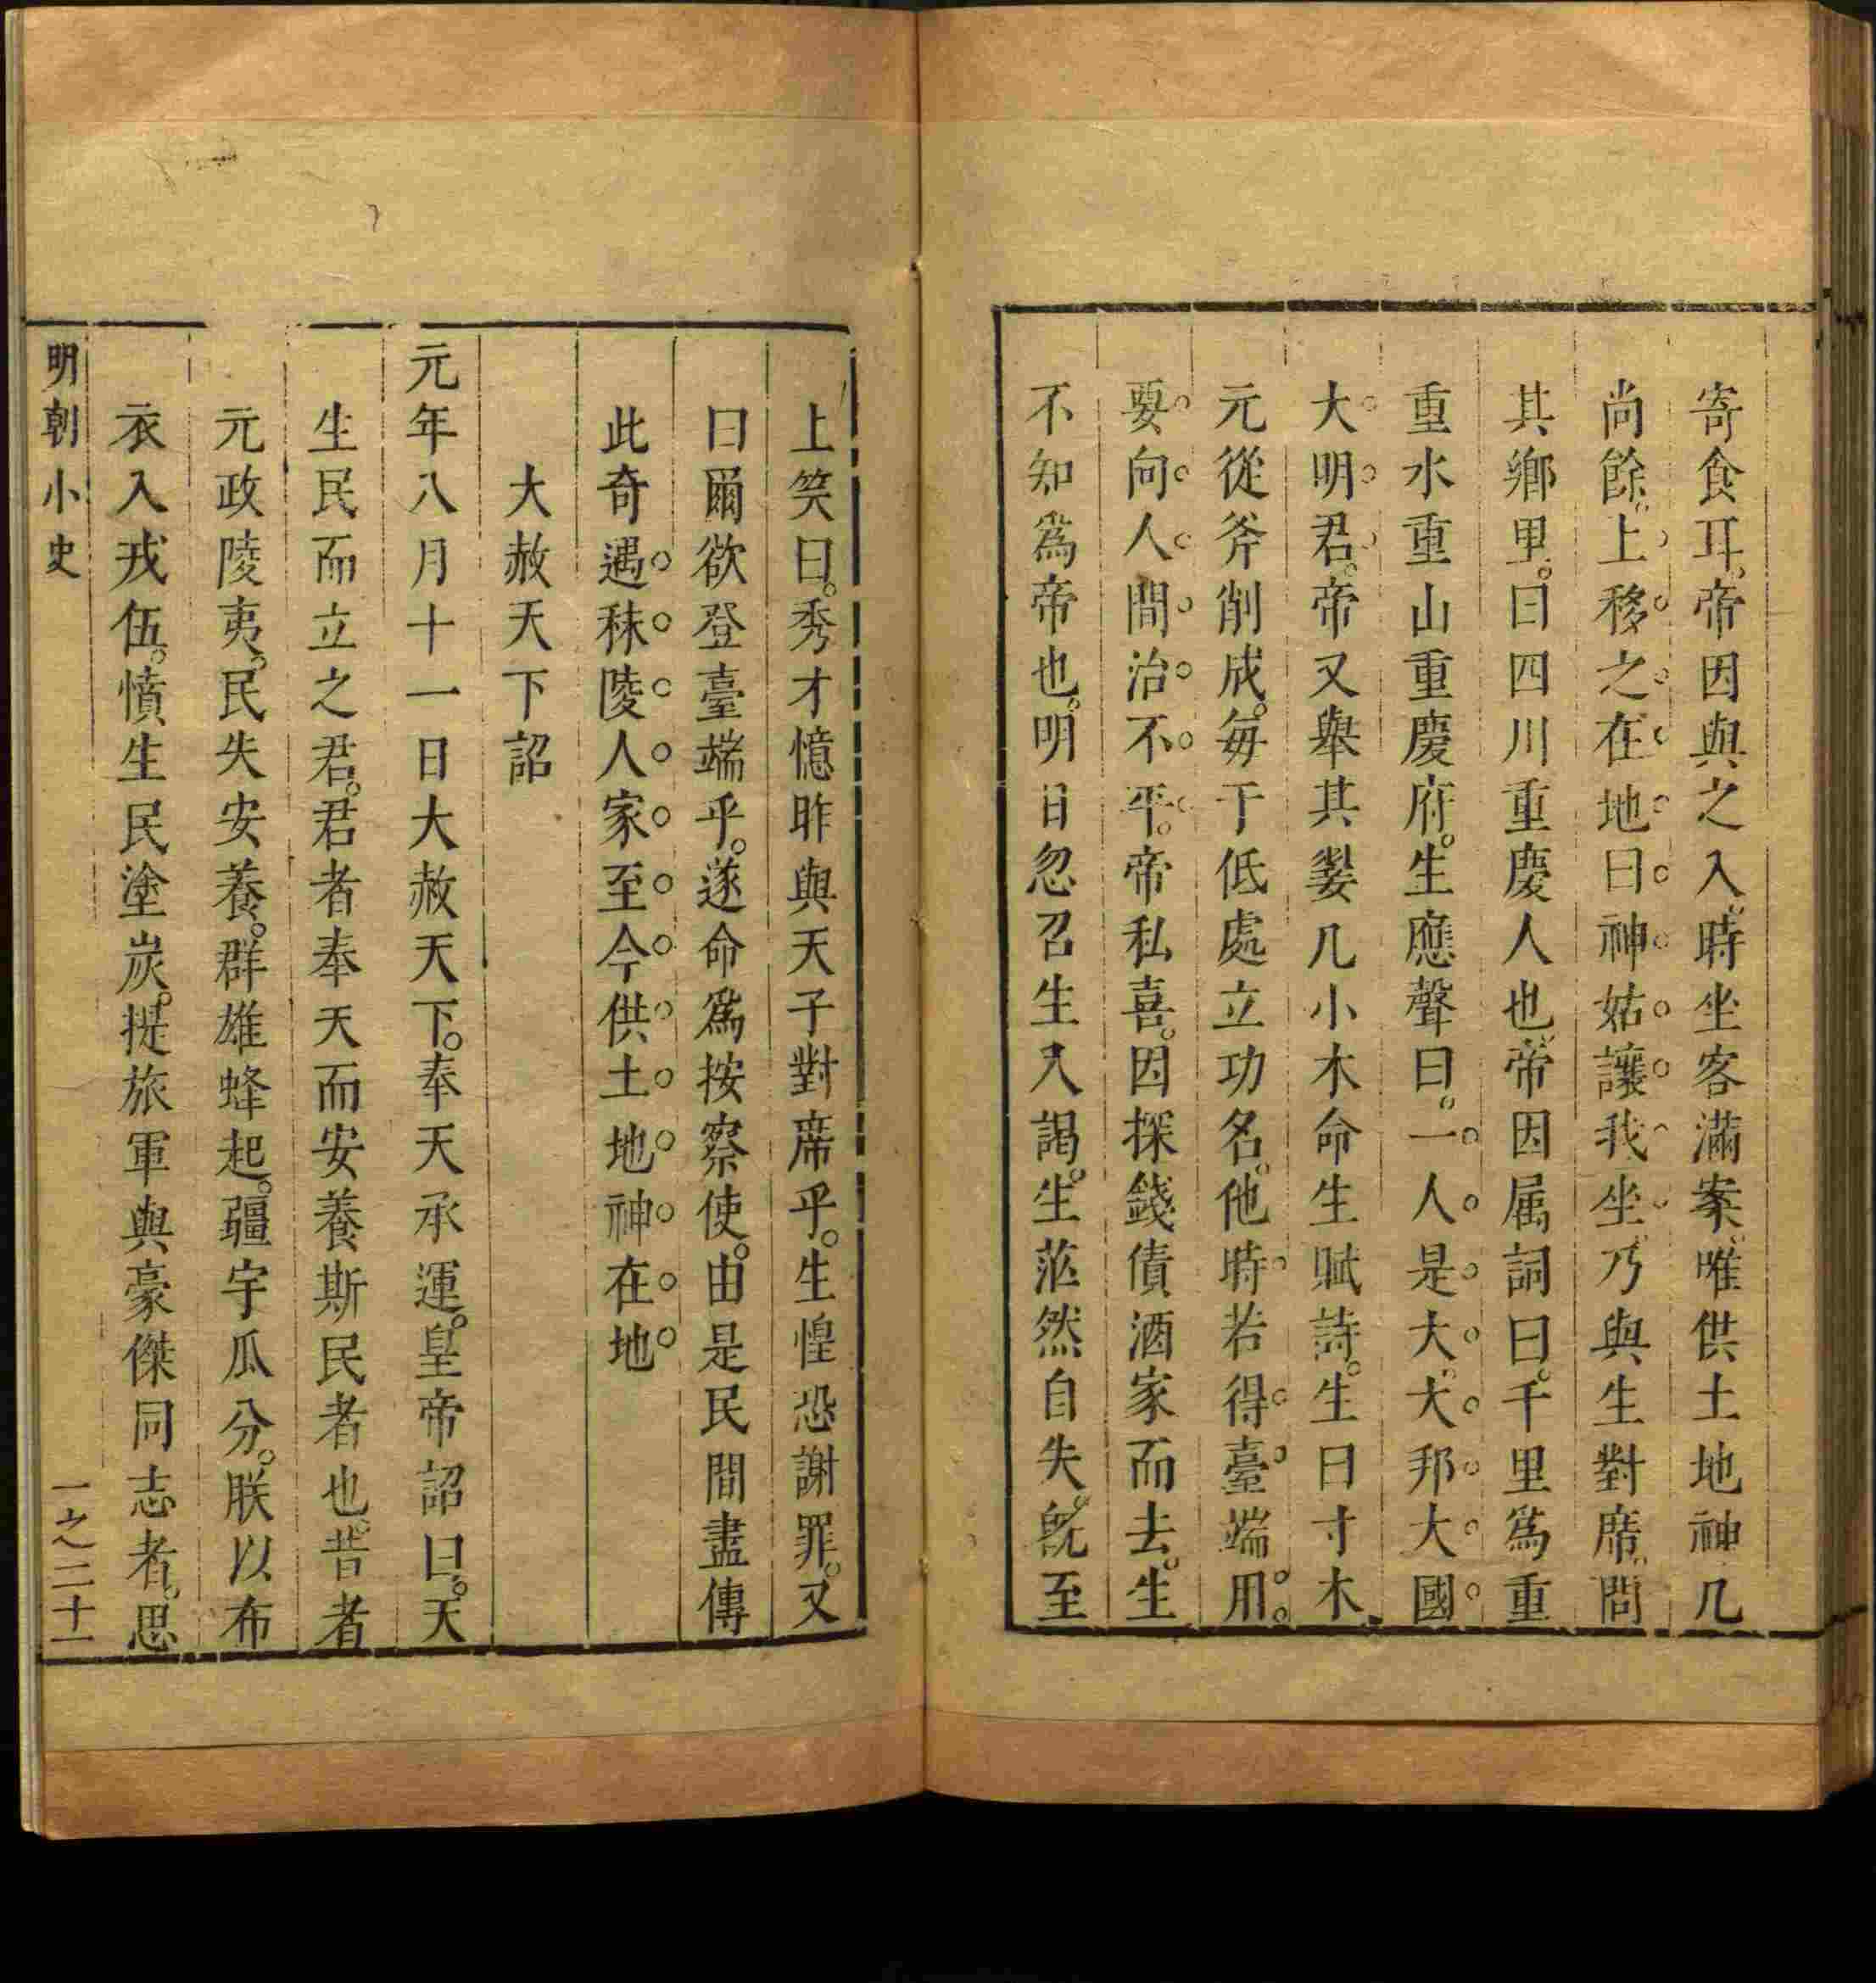 寄食耳。帝因與之入。時坐客滿案。唯供土地神几
尚餘。上移之在地曰神姑讓我坐。乃與生對席。問
其鄉里。曰四川重慶人也。帝因属詞曰。千里為重
重水重山重慶府。生應聲曰。一人是大。大邦大國
大明君。帝又舉其翣几小木命生賦詩。生曰寸木
元從斧削成。每于低處立功名。他時若得臺端用。
要向人間治不平。帝私喜。因探錢償酒家而去。生
不知為帝也。明日忽召生入謁。生茫然自失。旣至
上笑曰。秀才憶昨與天子對席乎。生惶恐謝罪。又
曰爾欲登臺端乎。遂命為按察使。由是民間盡傳
此奇遇秣陵人家至今供土地神在地
大赦天下詔
元年八月十一日大赦天下。奉天承運。皇帝詔曰。天
生民而立之君。君者奉天而安養斯民者也。昔者
元政陵夷。民失安養。群雄蜂起。疆宇瓜分。朕以布
衣入戎伍。憤生民塗炭。提旅軍與豪傑同志者。思
明朝小史
一之二十一